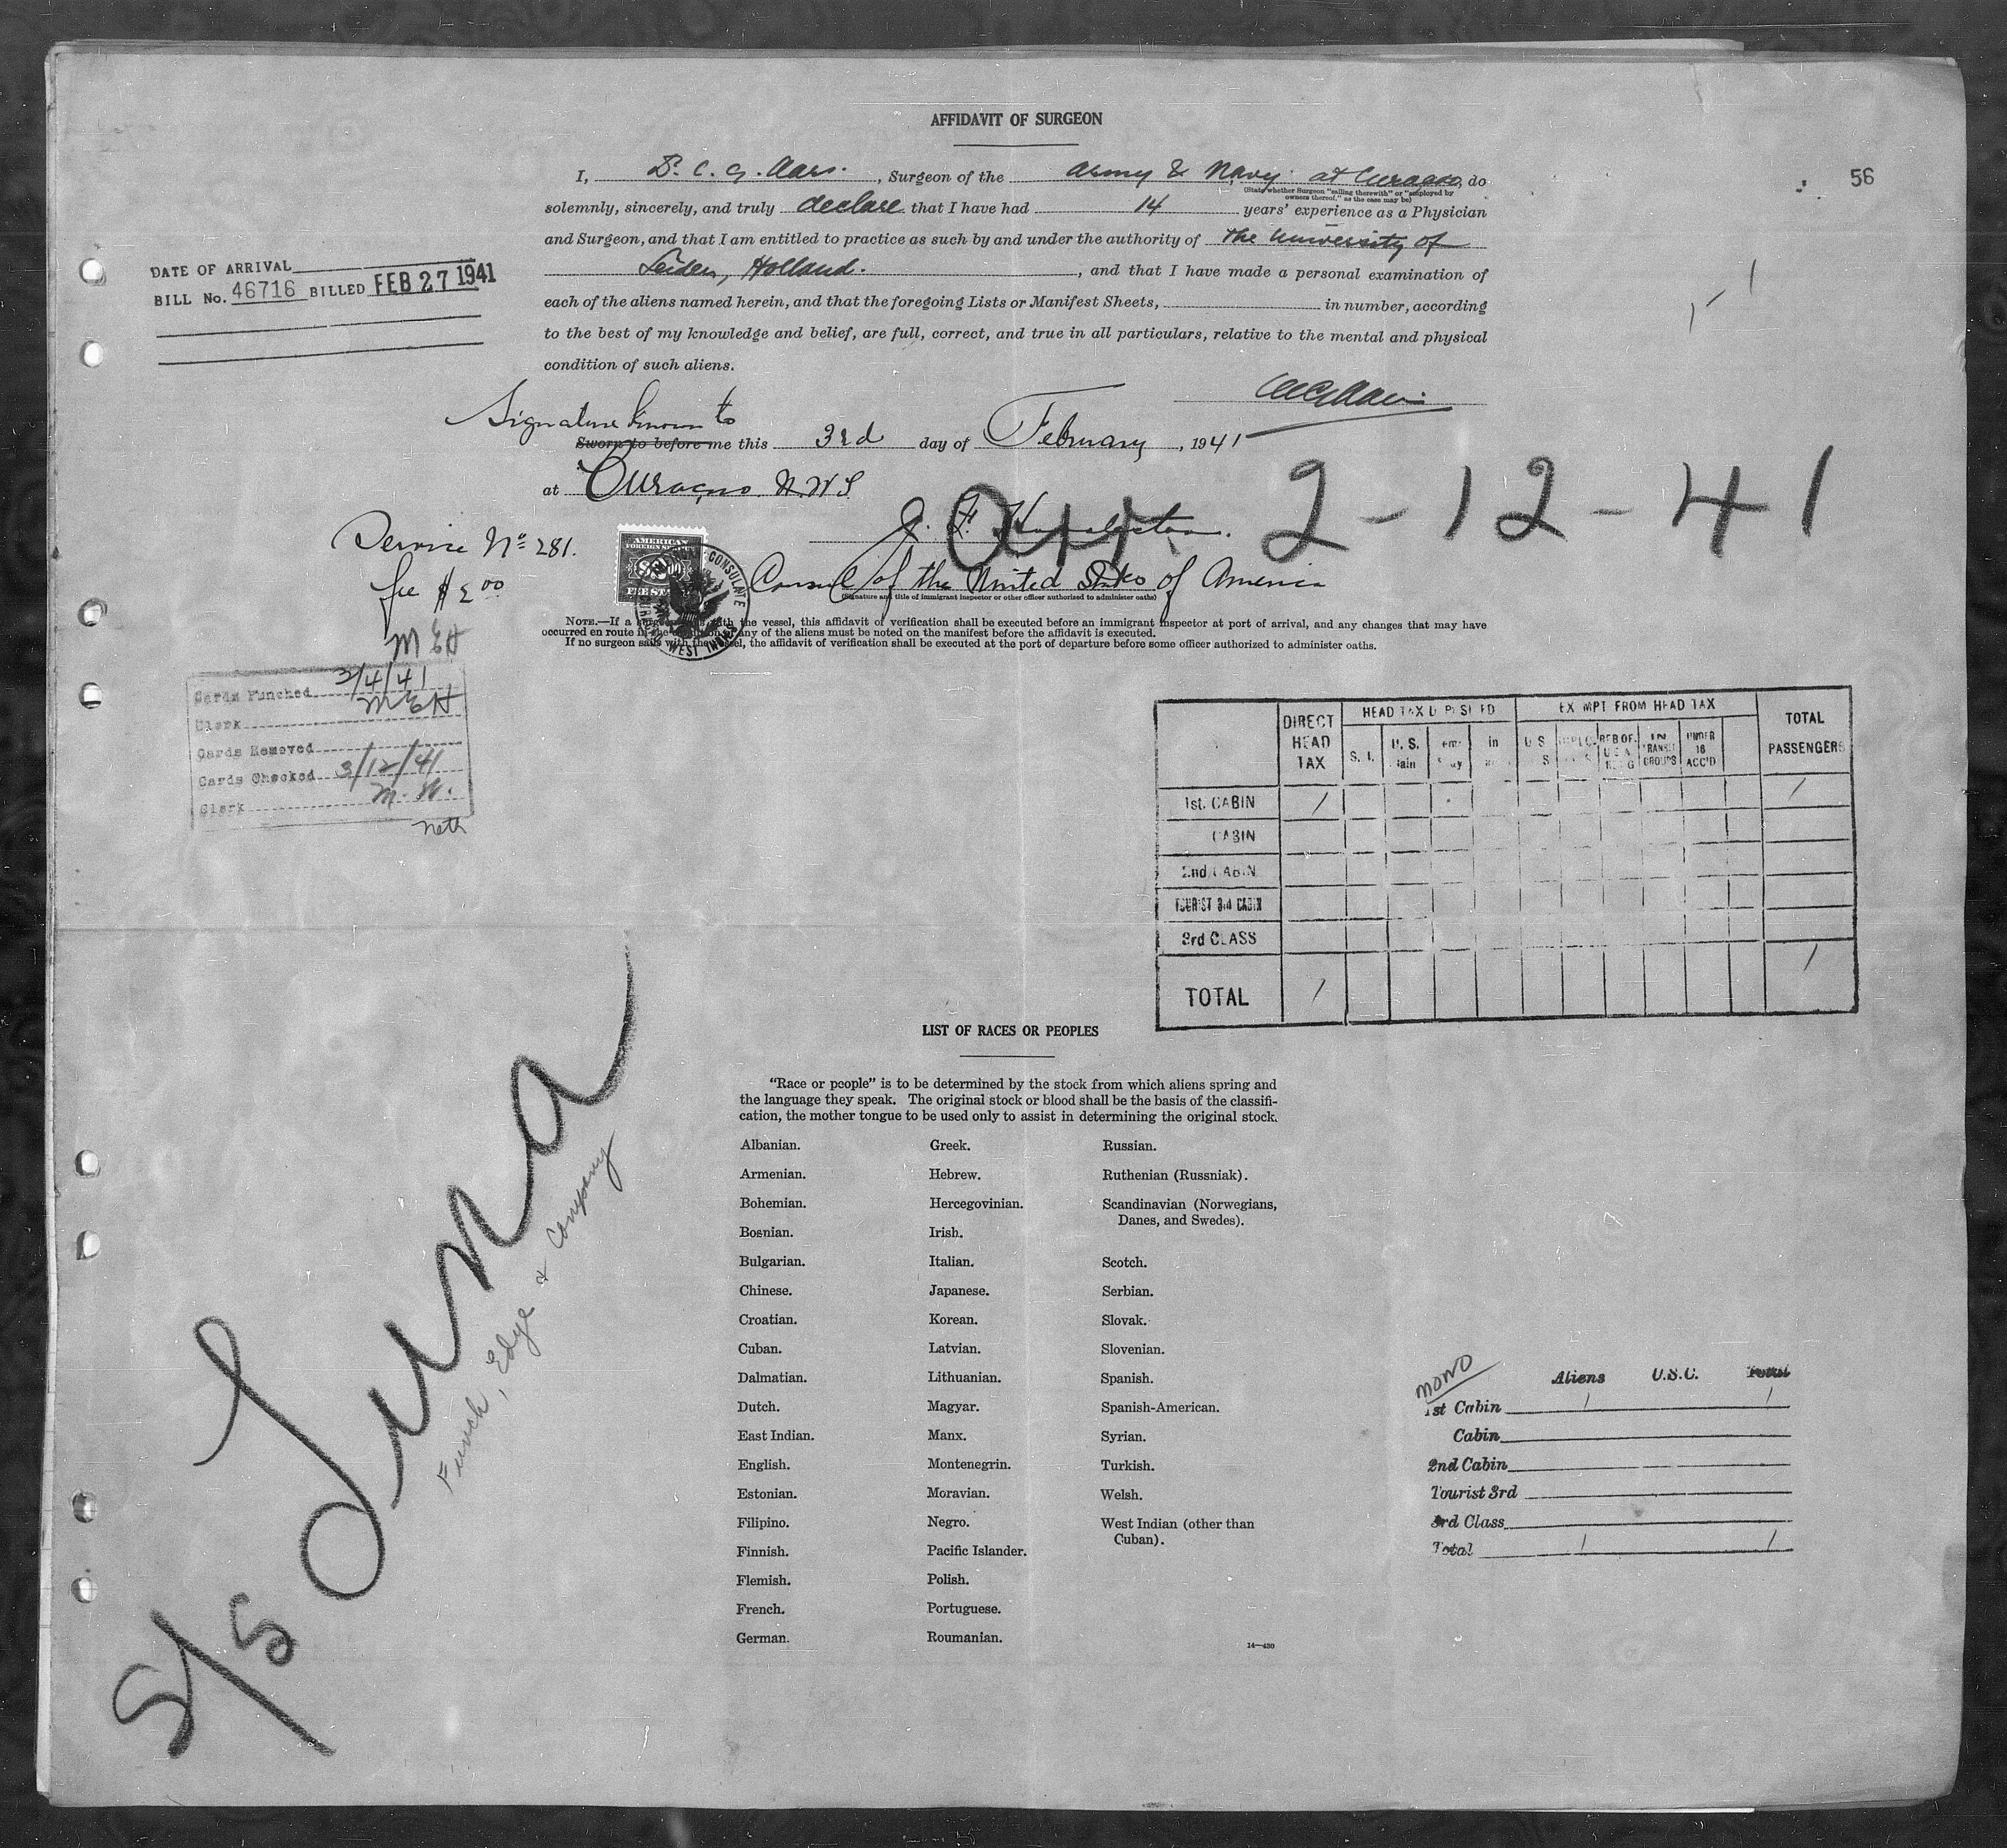 AFFIDAVIT OF SURGEON
56
I, D. C. G. Aars. , Surgeon of the Army & Navy at Curacao, do
(State whether Surgeon "sailing therewith" or "employed by
owners thereof," as the case may be)
solemnly, sincerely, and truly declare that I have had 14 years' experience as a Physician
and Surgeon, and that I am entitled to practice as such by and under the authority of the University of
Leiden, Holland. , and that I have made a personal examination of
each of the aliens named herein, and that the foregoing Lists or Manifest Sheets, in number, according
to the best of my knowledge and belief, are full, correct, and true in all particulars, relative to the mental and physical
condition of such aliens.
DATE OF ARRIVAL
BILL No. 46716 BILLED FEB 27 1941
Signature known to
Sworn to before me this 3rd day of February, 1941
at Curaçao N.W.I.
2-12-41
J. F.
Service No 281.
fee $2 00
AMERICAN
FOREIGN SERVICE
FEE STAMP
CONSULATE
WEST INDIES
Consul of the United States of America
(Signature and title of immigrant inspector or other officer authorized to administer oaths)
NOTE.—If a surgeon sails with the vessel, this affidavit of verification shall be executed before an immigrant inspector at port of arrival, and any changes that may have
occurred en route in the condition of any of the aliens must be noted on the manifest before the affidavit is executed.
If no surgeon sails with the vessel, the affidavit of verification shall be executed at the port of departure before some officer authorized to administer oaths.
MEH
Cards Punched 3/4/41
Clerk MEH
Cards Removed
Cards Checked 3/12/41
Clerk M. W.
neth
DIRECT HEAD TAX
HEAD TAX DEPOSITED
EXEMPT FROM HEAD TAX
TOTAL PASSENGERS
S. I.
U. S.
in
U S
TRANSIT GROUPS
UNDER 16 ACC'D
1st. CABIN / /
CABIN
2nd CABIN
TOURIST 3rd CABIN
3rd CLASS
TOTAL / /
LIST OF RACES OR PEOPLES
"Race or people" is to be determined by the stock from which aliens spring and
the language they speak. The original stock or blood shall be the basis of the classifi-
cation, the mother tongue to be used only to assist in determining the original stock.
Albanian.
Armenian.
Bohemian.
Bosnian.
Bulgarian.
Chinese.
Croatian.
Cuban.
Dalmatian.
Dutch.
East Indian.
English.
Estonian.
Filipino.
Finnish.
Flemish.
French.
German.
Greek.
Hebrew.
Hercegovinian.
Irish.
Italian.
Japanese.
Korean.
Latvian.
Lithuanian.
Magyar.
Manx.
Montenegrin.
Moravian.
Negro.
Pacific Islander.
Polish.
Portuguese.
Roumanian.
Russian.
Ruthenian (Russniak).
Scandinavian (Norwegians,
Danes, and Swedes).
Scotch.
Serbian.
Slovak.
Slovenian.
Spanish.
Spanish-American.
Syrian.
Turkish.
Welsh.
West Indian (other than
Cuban).
14—430
S/S Luna
Funch, Edye & Company
MOWO
Aliens U.S.C. Total
1st Cabin 1 1
Cabin
2nd Cabin
Tourist 3rd
3rd Class
Total 1 1